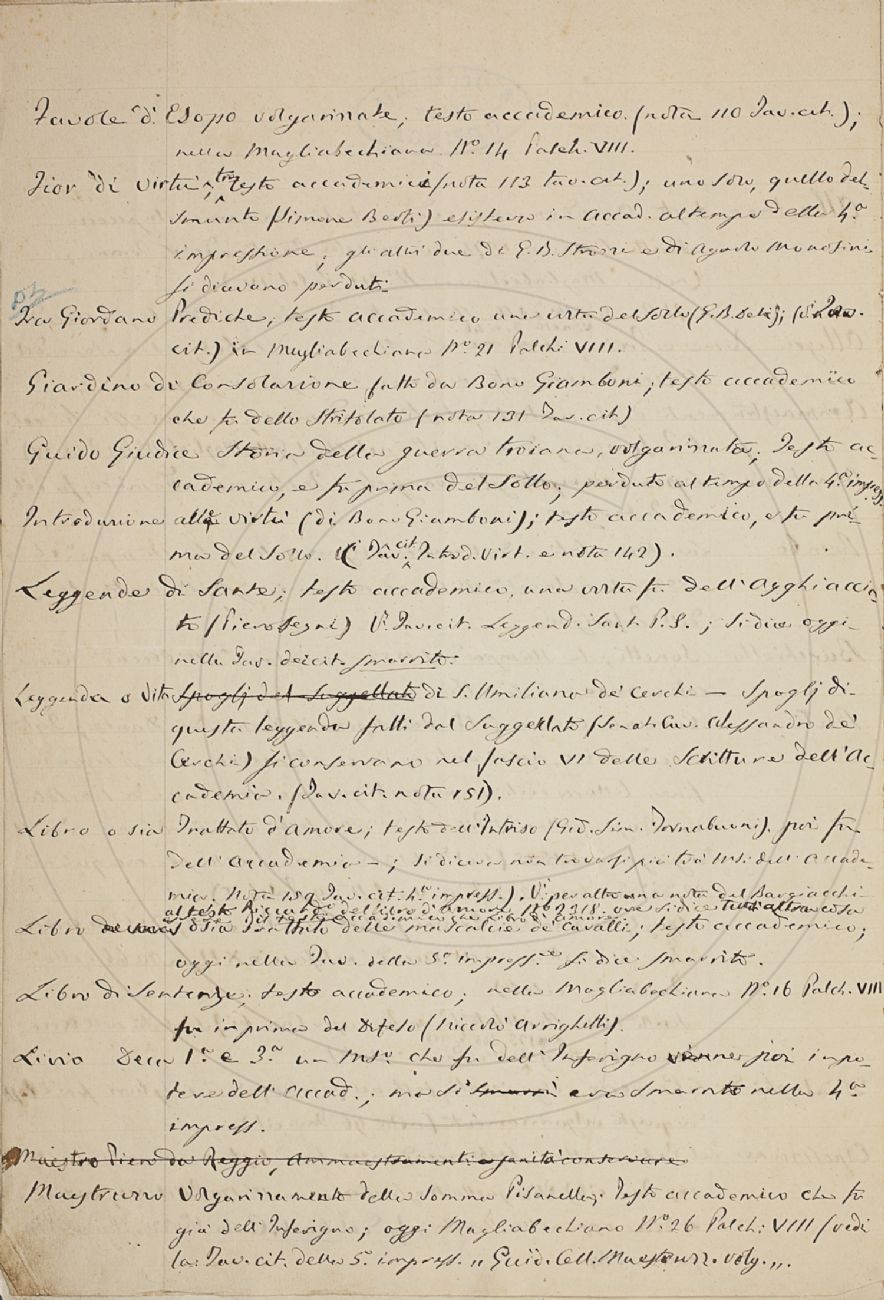 Favole d'Esopo volgarizzate; testo accademico. (nota 110 Tav. cit.);
nella Magliabechiana Nº. 14 Palch. VIII.
Fior di virtù, tre testo accademici (nota 113 tav. cit.); uno solo, quello del
smunto (Simone Berti) esisteva in Accad. al tempo della 4ª
impressione; gli altri due di G. B. Strozzi e di Agnolo Monosini
si dicevano perduti
Fra Giordano Prediche; testo accademico una volta del Sollo (G. B. Deti); (V. Tav.
cit.) in Magliabechiana Nº. 21 Palch. VIII.
Giardino di Consolazione fatto da Bono Giamboni; testo accademico
che fu dello Stritolato (nota 131 Tav. cit)
Guido Giudice Storia della guerra troiana, volgarizzata; Testo ac-
cademico, e fu prima del Sollo; perduto al tempo della 4ª impress.
Introduzione alle virtù (di Bono Giamboni); testo accademico, e fu pri-
ma del Sollo. (V. Tav. cit. Introd. Virt. e nota 142).
Leggende di Sante; testo accademico, una volta fu dell'Agghiaccia-
to (Piero Segni) V. Tav. cit. Leggend. Sant. P. S.; si dice oggi
nella Tav. dei cit. smarrito.
Leggenda o Vita Spoglj del Suggellato di S. Umiliana de' Cerchi — Spoglj di
questa leggenda fatti dal Suggellato (Senat. Cav. Alessandro de'
Cerchi) si conservano nel fascio VI delle Scritture dell'Ac-
cademia. (Tav. cit. nota 151).
Libro o sia Trattato d'Amore; testo dell'Intriso (Gio. Sim. Tornabuoni) poi fu
dell'Accademia —; si diceva non trovarsi più tra' Mss. dell'Accade-
mia, Nota 159 Tav. cit. 4ª impress.). V. per altro una nota del Bargiacchi
al testo del libro d'Amore ove si dice tutt'altra cosa
Libro o sia Trattato delle mascalcie de' cavalli; testo accademico;
oggi nella Tav. della 5ª impress.ne si dice smarrito.
Libro di Sentenze; testo accademico; nella Magliabechiana Nº. 16 Palch. VIII
fu in prima del Difeso (Niccolò Arrighetti).
Livio Deca 1ª e 3ª un Mso. che fu dell'Inferigno venne poi in po-
tere dell'Accad.; ma si smarrì era smarrito nella 4ª
impress.
Maestro Piero da Reggio, Ammaestramenti a sanità conservare
Maestruzzo Volgarizzamento della Somma Pisanella; Testo accademico che fu
già dell'Inferigno; oggi Magliabechiano Nº. 26 Palch. VIII (vedi
la Tav. cit. della 5ª impress. „ Guid. Cell. Maestruzz. volg. „.